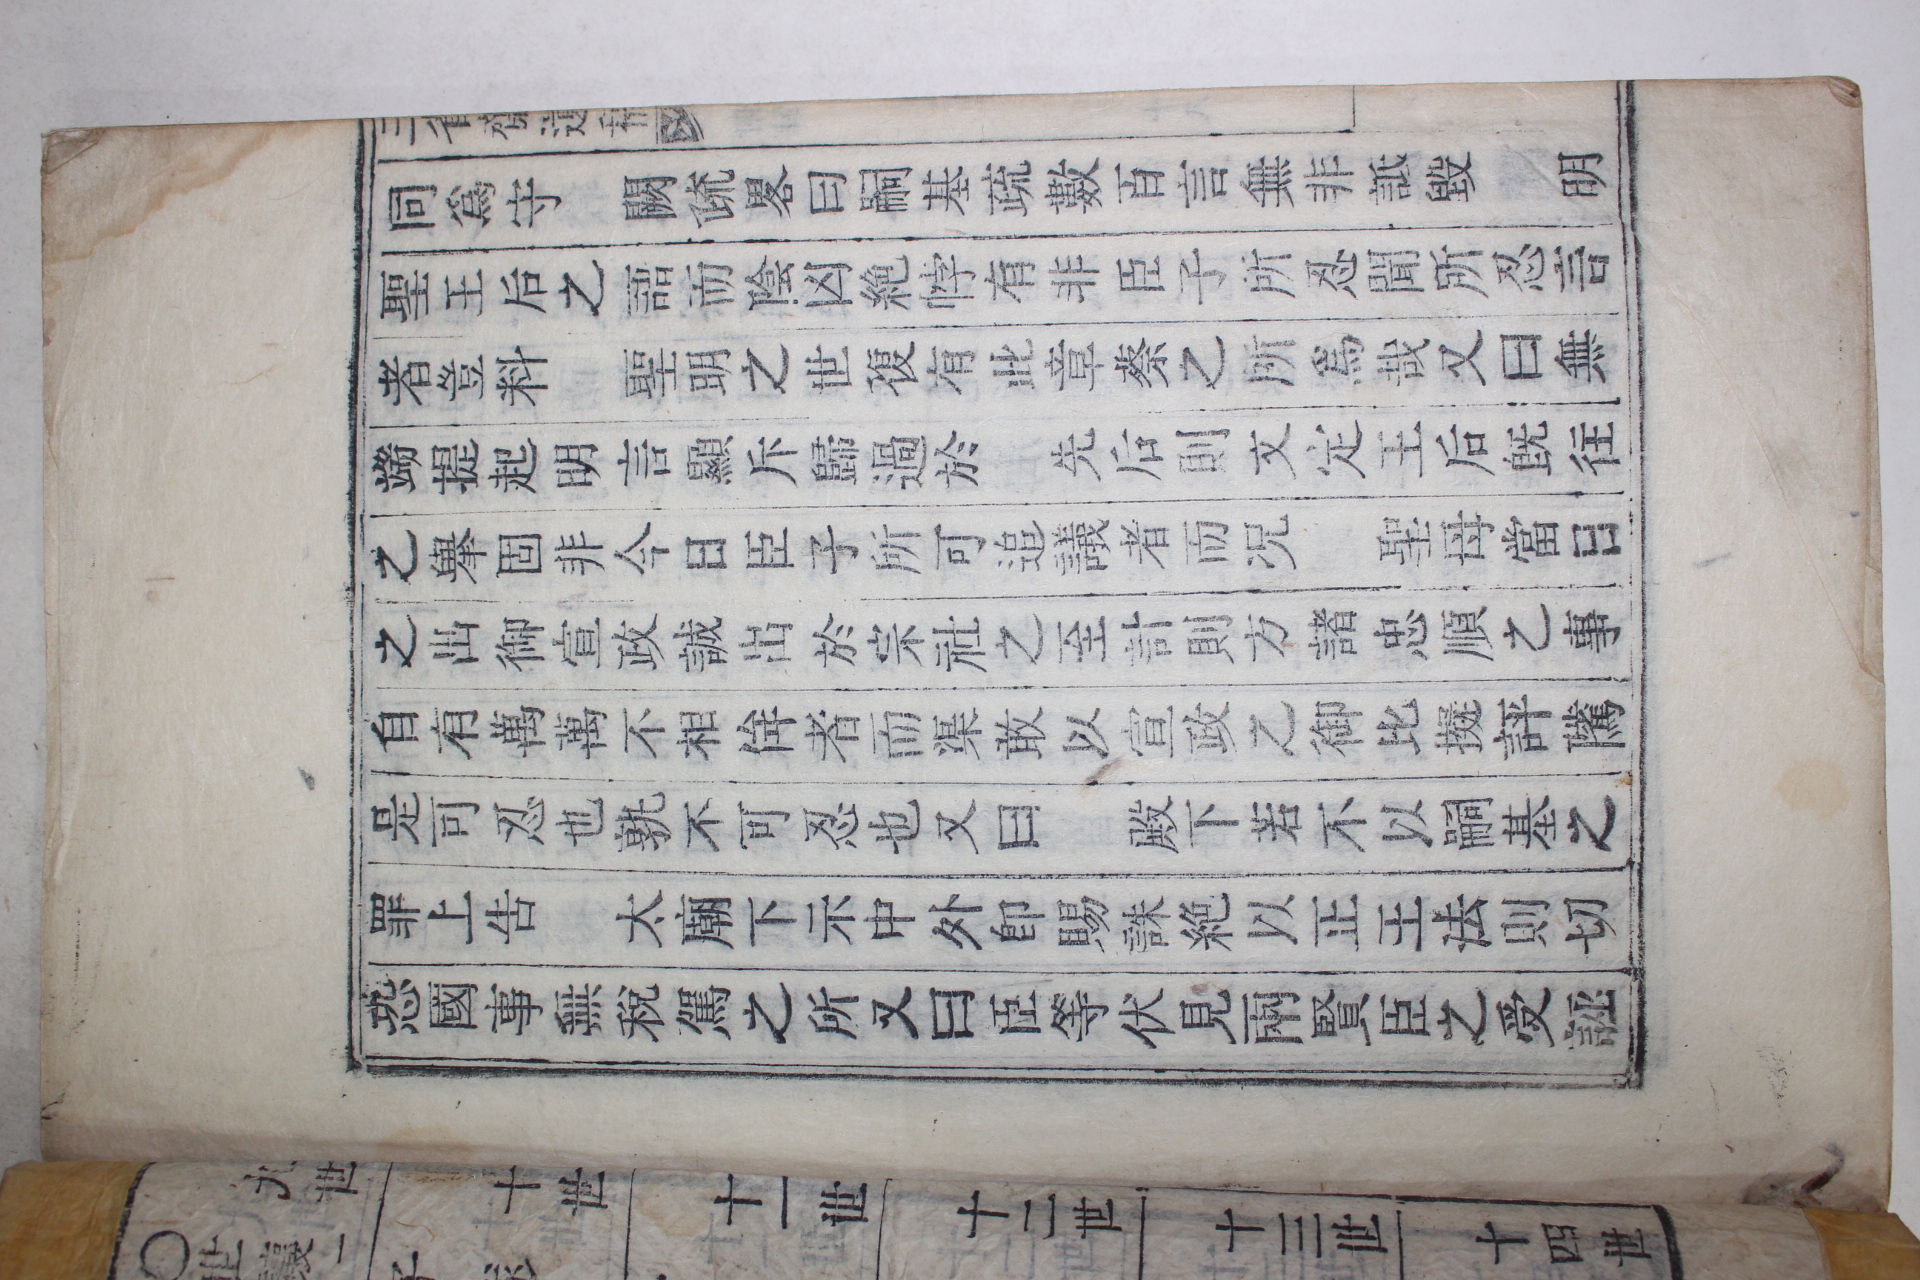 三省齋遺稿
同爲守　闕疏畧曰嗣基疏數百言無非詆毀　明
聖王后之語而陰凶絶悖有非臣子所忍聞所忍言
者豈料　聖明之世復有此章蔡之所爲哉又曰無
端提起明言顯斥歸過於　先后則文定王后旣往
之擧固非今日臣子所可追議者而况　聖母當日
之出御宣政誠出於宗社之至計則方諸忠順之事
自有萬萬不相侔者而渠敢以宣政之御比擬評騭
是可忍也孰不可忍也又曰　殿下若不以嗣基之
罪上告　太廟下示中外卽賜誅絶以正王法則切
恐國事無稅駕之所又曰臣等伏見兩賢臣之受誣
九世
十世
十一世
十二世
十三世
十四世
〇世
一
子